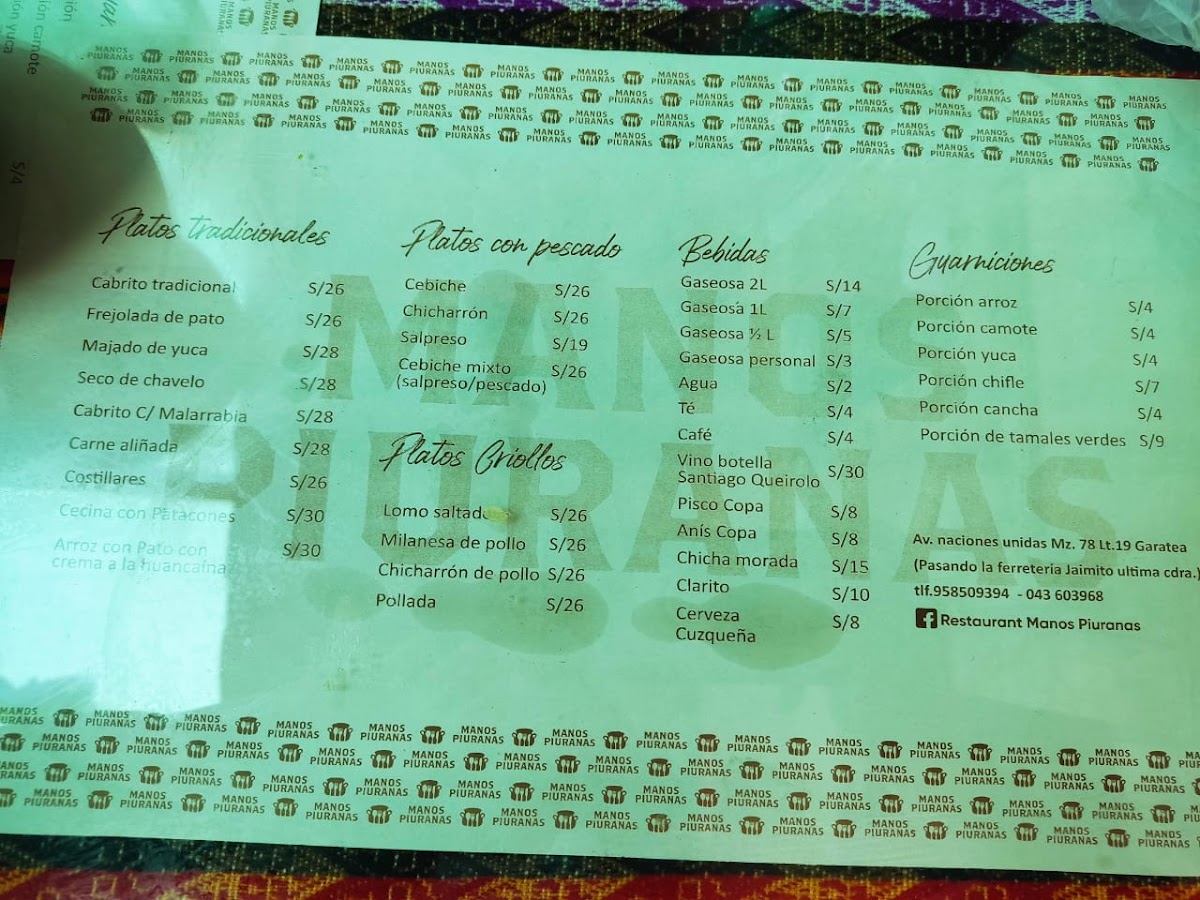 MANOS PIURANAS
Platos tradicionales
Cabrito tradicional S/26
Frejolada de pato S/26
Majado de yuca S/28
Seco de chavelo S/28
Cabrito C/ Malarrabia S/28
Carne aliñada S/28
Costillares S/26
Cecina con Patacones S/30
Arroz con Pato con S/30
crema a la huancaína
Platos con pescado
Cebiche S/26
Chicharrón S/26
Salpreso S/19
Cebiche mixto S/26
(salpreso/pescado)
Platos Criollos
Lomo saltado S/26
Milanesa de pollo S/26
Chicharrón de pollo S/26
Pollada S/26
Bebidas
Gaseosa 2L S/14
Gaseosa 1L S/7
Gaseosa ½ L S/5
Gaseosa personal S/3
Agua S/2
Té S/4
Café S/4
Vino botella S/30
Santiago Queirolo
Pisco Copa S/8
Anís Copa S/8
Chicha morada S/15
Clarito S/10
Cerveza S/8
Cuzqueña
Guarniciones
Porción arroz S/4
Porción camote S/4
Porción yuca S/4
Porción chifle S/7
Porción cancha S/4
Porción de tamales verdes S/9
Av. naciones unidas Mz. 78 Lt.19 Garatea
(Pasando la ferreteria Jaimito ultima cdra.)
tlf.958509394 - 043 603968
Restaurant Manos Piuranas
MANOS
PIURANAS